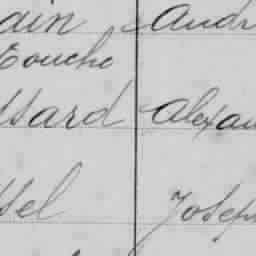 ain Andr
Touche
ssard Alexan
ssel Joseph